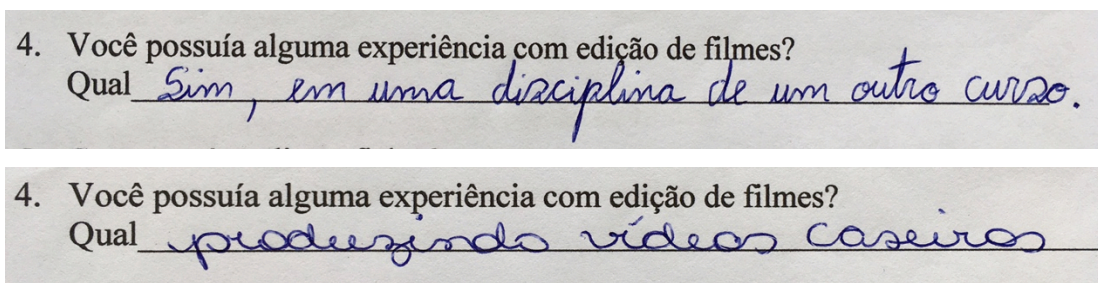 4. Você possuía alguma experiência com edição de filmes?
Qual Sim, em uma disciplina de um outro curso.
4. Você possuía alguma experiência com edição de filmes?
Qual produzindo vídeos caseiros